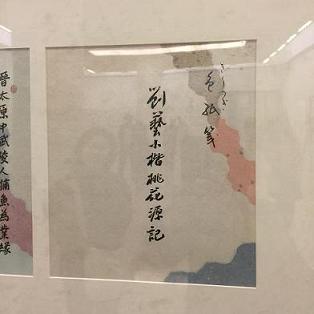 色紙筆
劉藝小楷桃花源記
晉太原中武陵人捕魚為業緣